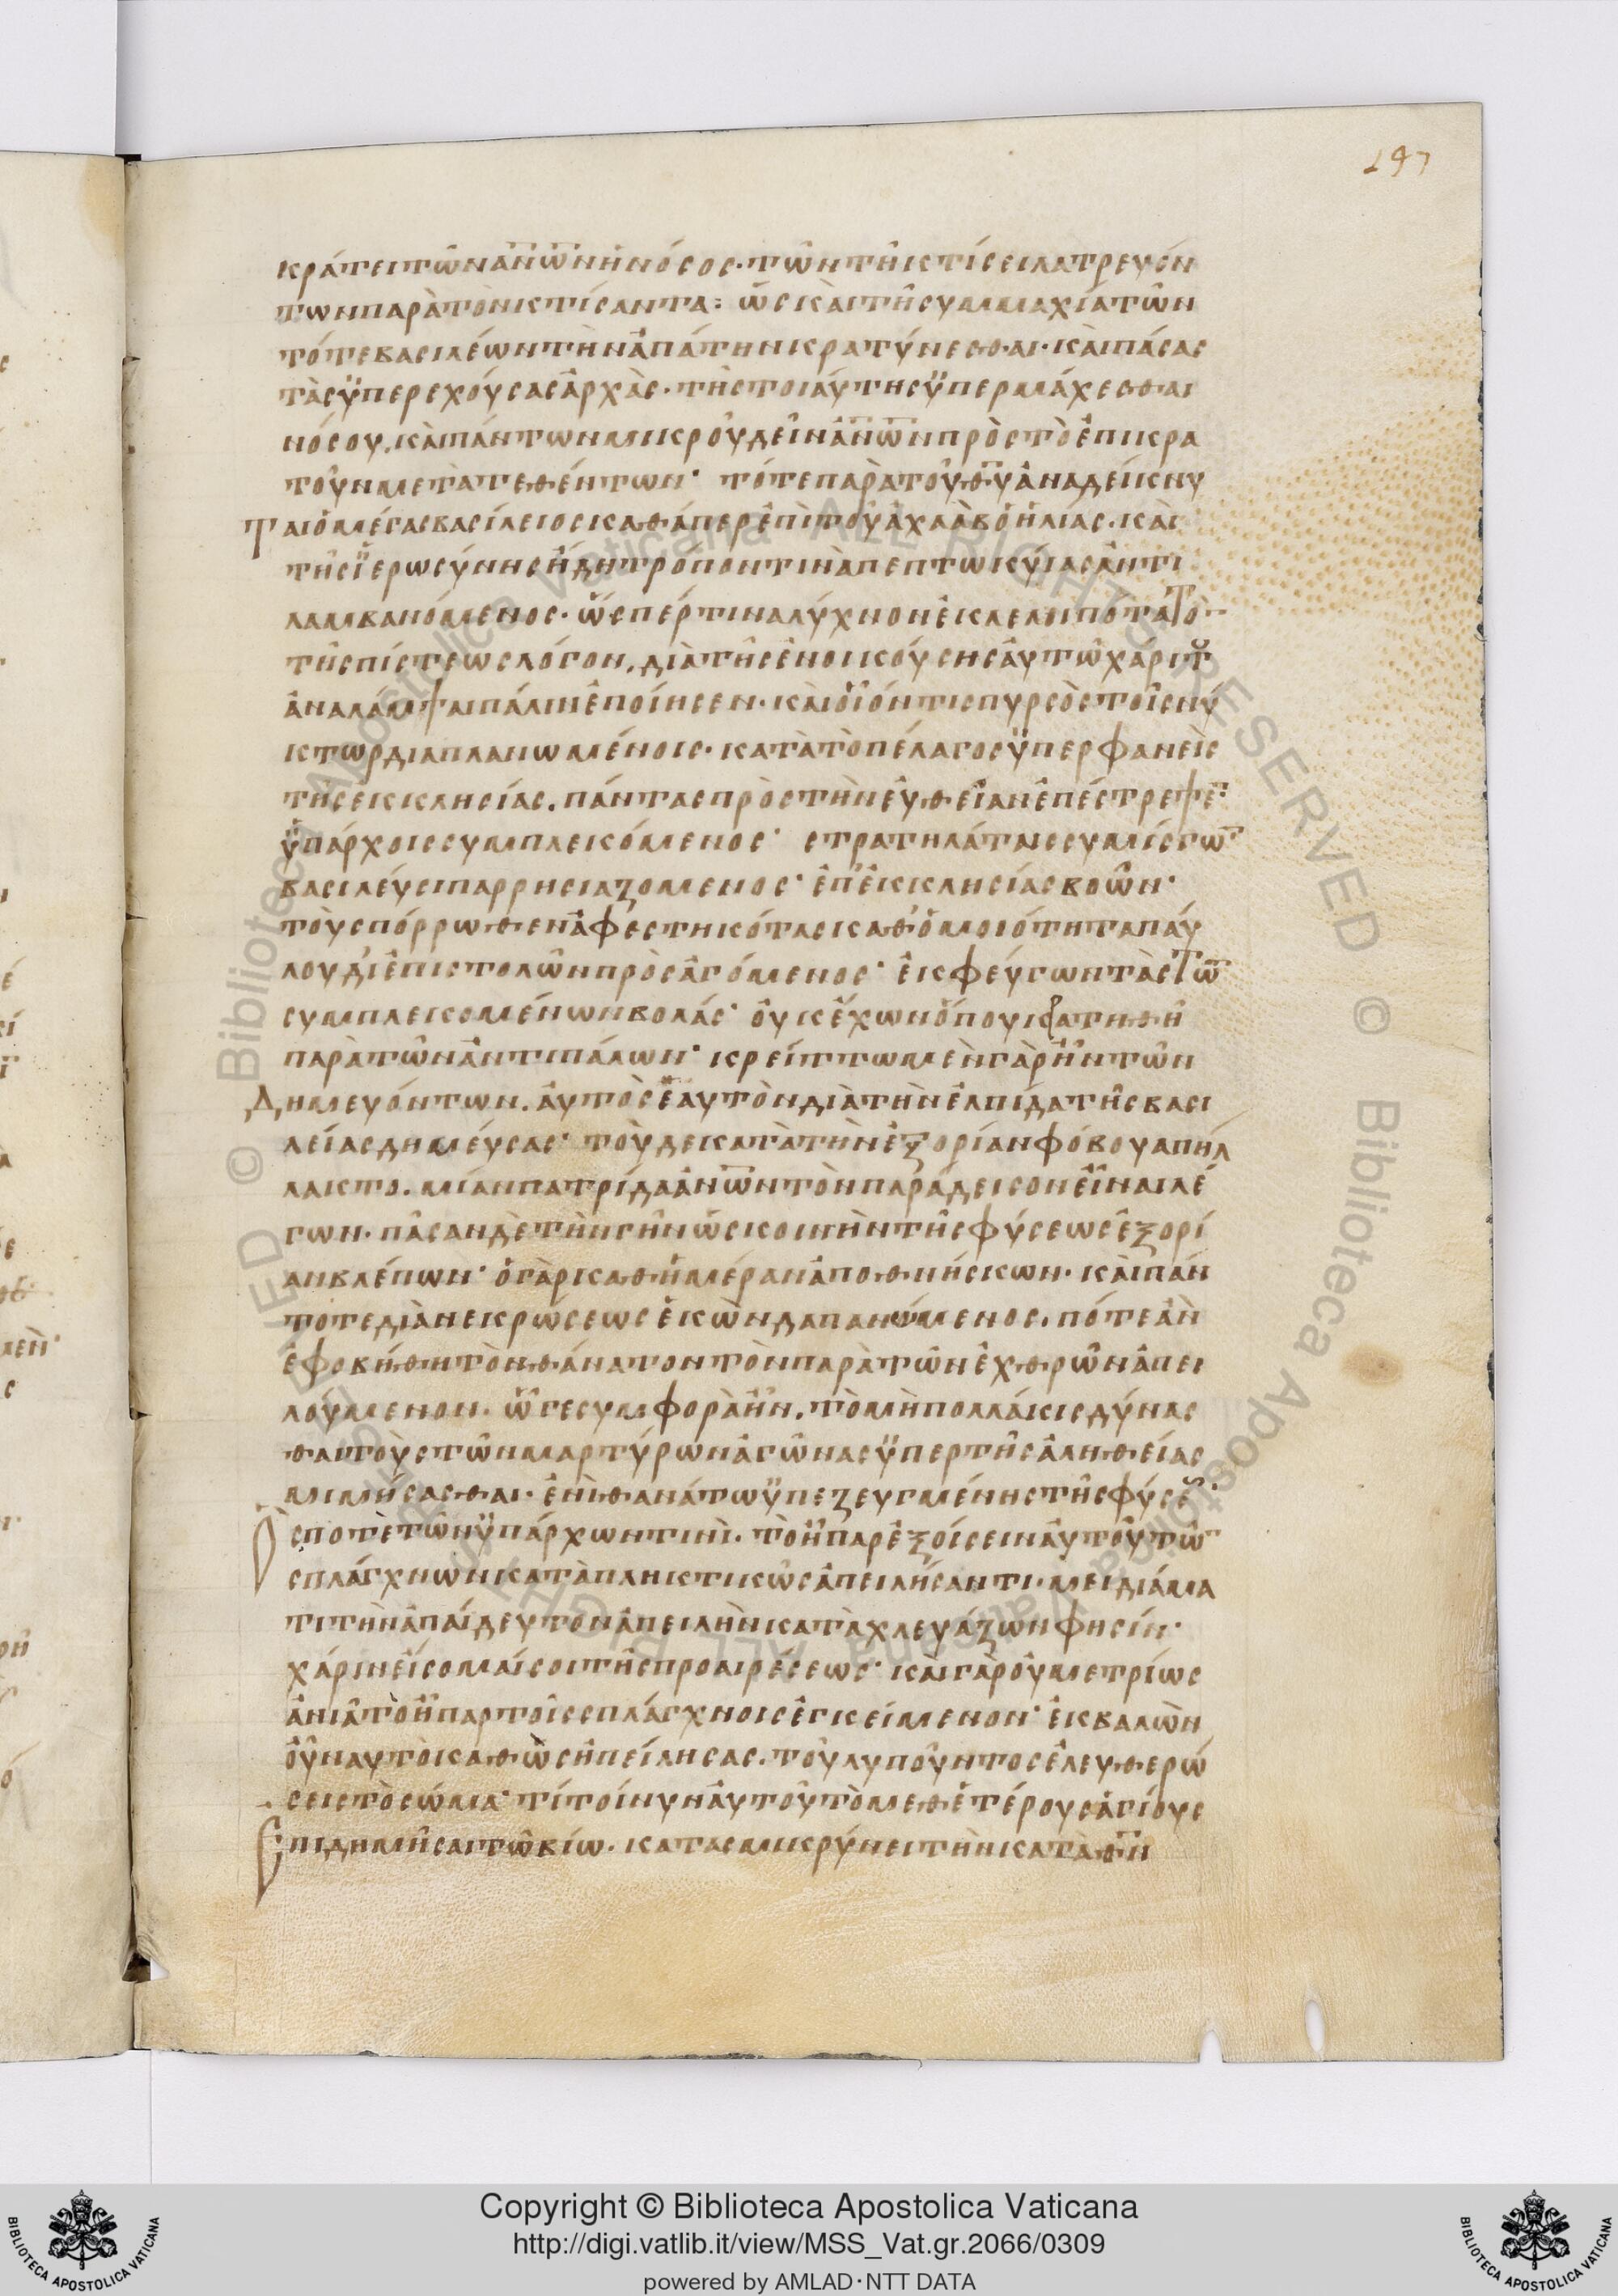 197
κράτει τῶν ἀν̅ω̅ν ἡ νόσος· τῶν τῆ κτίσει λατρευόν
των παρὰ τὸν κτίσαντα: ὡς καὶ τῆ συμμαχία τῶν
τότε βασιλέων τὴν ἀπάτην κρατύνεσθαι· καὶ πάσας
τὰς ὑπερεχούσας ἀρχὰς· τῆς τοιαύτης ὑπερμάχεσθαι
νόσου. καὶ πάντων μικροῦ δεῖν ἀν̅ω̅ν πρὸς τὸ ἐπικρα
τοῦν μετατεθέντων· τότε παρὰ τοῦ θ̅υ̅ ἀναδείκνυ
ται ὁ μέγας βασίλειος καθάπερ ἐπὶ τοῦ ἀχαὰβ ὁ ἠλίας. καὶ
τῆς ἱερωσύνης ἤδη τρόπον τινὰ πεπτωκύιας ἀντι
λαμβανόμενος· ὥσπέρ τινα λύχνον ἐκλελοιπότα τὸ
τῆς πίστεως λόγον, διὰ τῆς ἐνοικούσης αὐτῶ χάριτ
ἀναλάμψαι πάλιν ἐποίησεν· καὶ οἷόν τις πυρσὸς τοῖς νύ
κτωρ διαπλανωμένοις· κατὰ τὸ πέλαγος ὑπερφανεὶς
τῆς ἐκκλησίας. πάντας πρὸς τὴν ἐυθεῖαν ἐπέστρεψε·
ὑπάρχοις συμπλεκόμενος· στρατηλάταις συμίσγω
βασιλέυσι παρρησιαζομενος· ἐπ' ἐκκλησίας βοῶν·
τοὺς πόρρωθεν ἀφεστηκότας καθ' ὁμοιότητα πάυ
λου δι' ἐπιστολῶν προσαγόμενος· ἐκφέυγων τὰς τῶ
συμπλεκομένων βολάς· οὐκ ἔχων ὅπου κρατηθῆ
παρὰ τῶν ἀντιπάλων· κρείττω μὲν γὰρ ἦν τῶν
Δημευόντων. ἀυτὸς ἑαυτὸν διὰ τὴν ἐλπίδα τῆς βασι
λείας δημέυσας· τοῦ δε κατὰ τὴν ἐξορίαν φόβου απήλ
λακτο. μίαν πατρίδα ἀν̅ω̅ν τὸν παράδεισον εἶναι λέ
γων· πᾶσαν δὲ τὴν γῆν ὡς κοινὴν τῆς φύσεως ἐξορί
αν βλέπων· ὁ γὰρ καθ' ἡμέραν ἀποθνήσκων· καὶ πάν
τοτε διὰ νεκρώσεως ἑκὼν δαπανώμενος. πότε ἂν
ἐφοβήθη τὸν θάνατον τὸν παρὰ τῶν ἐχθρῶν ἀπει
λούμενον· ᾧ γε συμφορὰ ἦν. τὸ μὴ πολλάκις δύνας
θαι τοὺς τῶν μαρτύρων ἀγῶνας ὑπερ τῆς ἀληθείας
μιμήσασθαι· ἐνὶ θανάτω ὑπεζευγμένης τῆς φύσε
Ὅς ποτὲ τῶν ὑπάρχων τινὶ. τὸ ἧπαρ ἐξοίσειν αὐτοῦ τῶ
σπλάγχνων καταπληκτικῶς ἀπειλήσαντι· μειδιάμα
τι τὴν ἀπάιδευτον ἀπειλὴν καταχλευάζων φησίν·
χάριν εἴσομαί σοι τῆς προαιρέσεως· καὶ γὰρ οὐ μετρίως
ἀνιᾶ τὸ ἧπαρ τοῖς σπλάγχνοις ἐγκείμενον· ἐκβαλὼν
οὖν αυτὸ καθὼς ἠπείλησας. τοῦ λυποῦντος ἐλευθερώ
σεις τὸ σῶμα· τί τοίνυν αὐτοῦ τὸ μεθ' ἑτέρους ἁγίους
Ἐπιδημῆσαι τῶ βίω. κατασμικρύνει τὴν κατὰ θ̅ν̅
Copyright © Biblioteca Apostolica Vaticana
http://digi.vatlib.it/view/MSS_Vat.gr.2066/0309
powered by AMLAD·NTT DATA